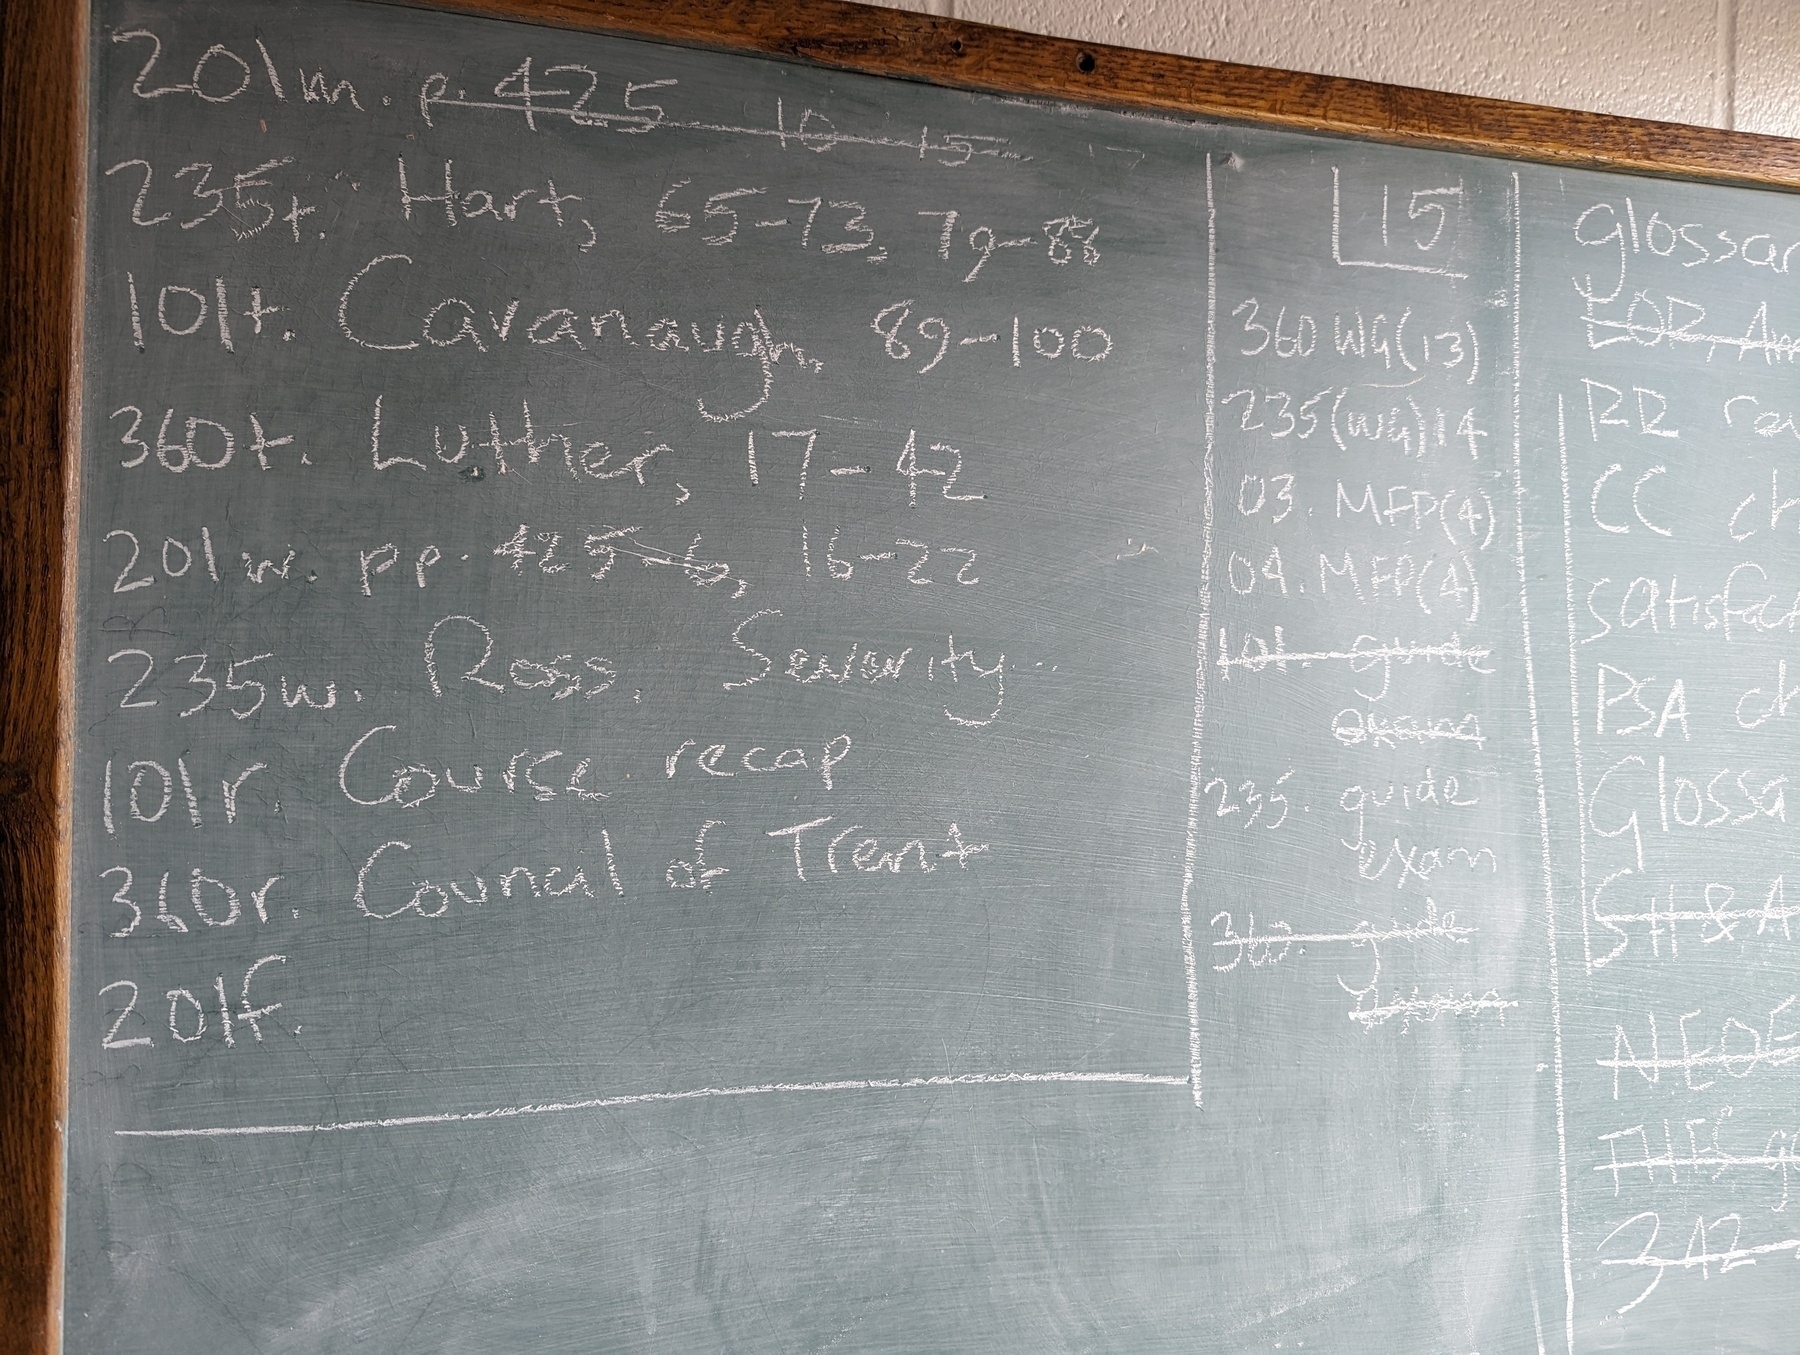 201m. p. 425 10-15
235t. Hart, 65-73, 79-88
101t. Cavanaugh, 89-100
360t. Luther, 17-42
201w. pp. 425-6, 16-22
235w. Ross, Severity...
101r. Course recap
360r. Council of Trent
201f.
15
360 WG(13)
235(WG)14
03. MFP(4)
04. MFP(4)
101. guide
exam
235. guide
exam
360. guide
glossar
EOP, Am
RR
CC ch
satisfact
BSA ch
Glossa
SH & A
NEOE
THES g
342